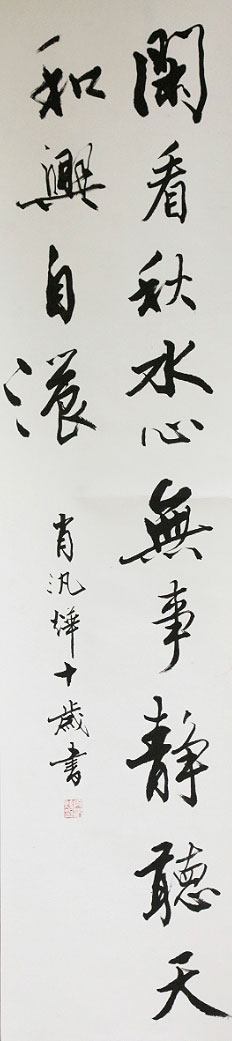 闌看秋水心無事静聽天
和興自濃
肖汎燁十歲書